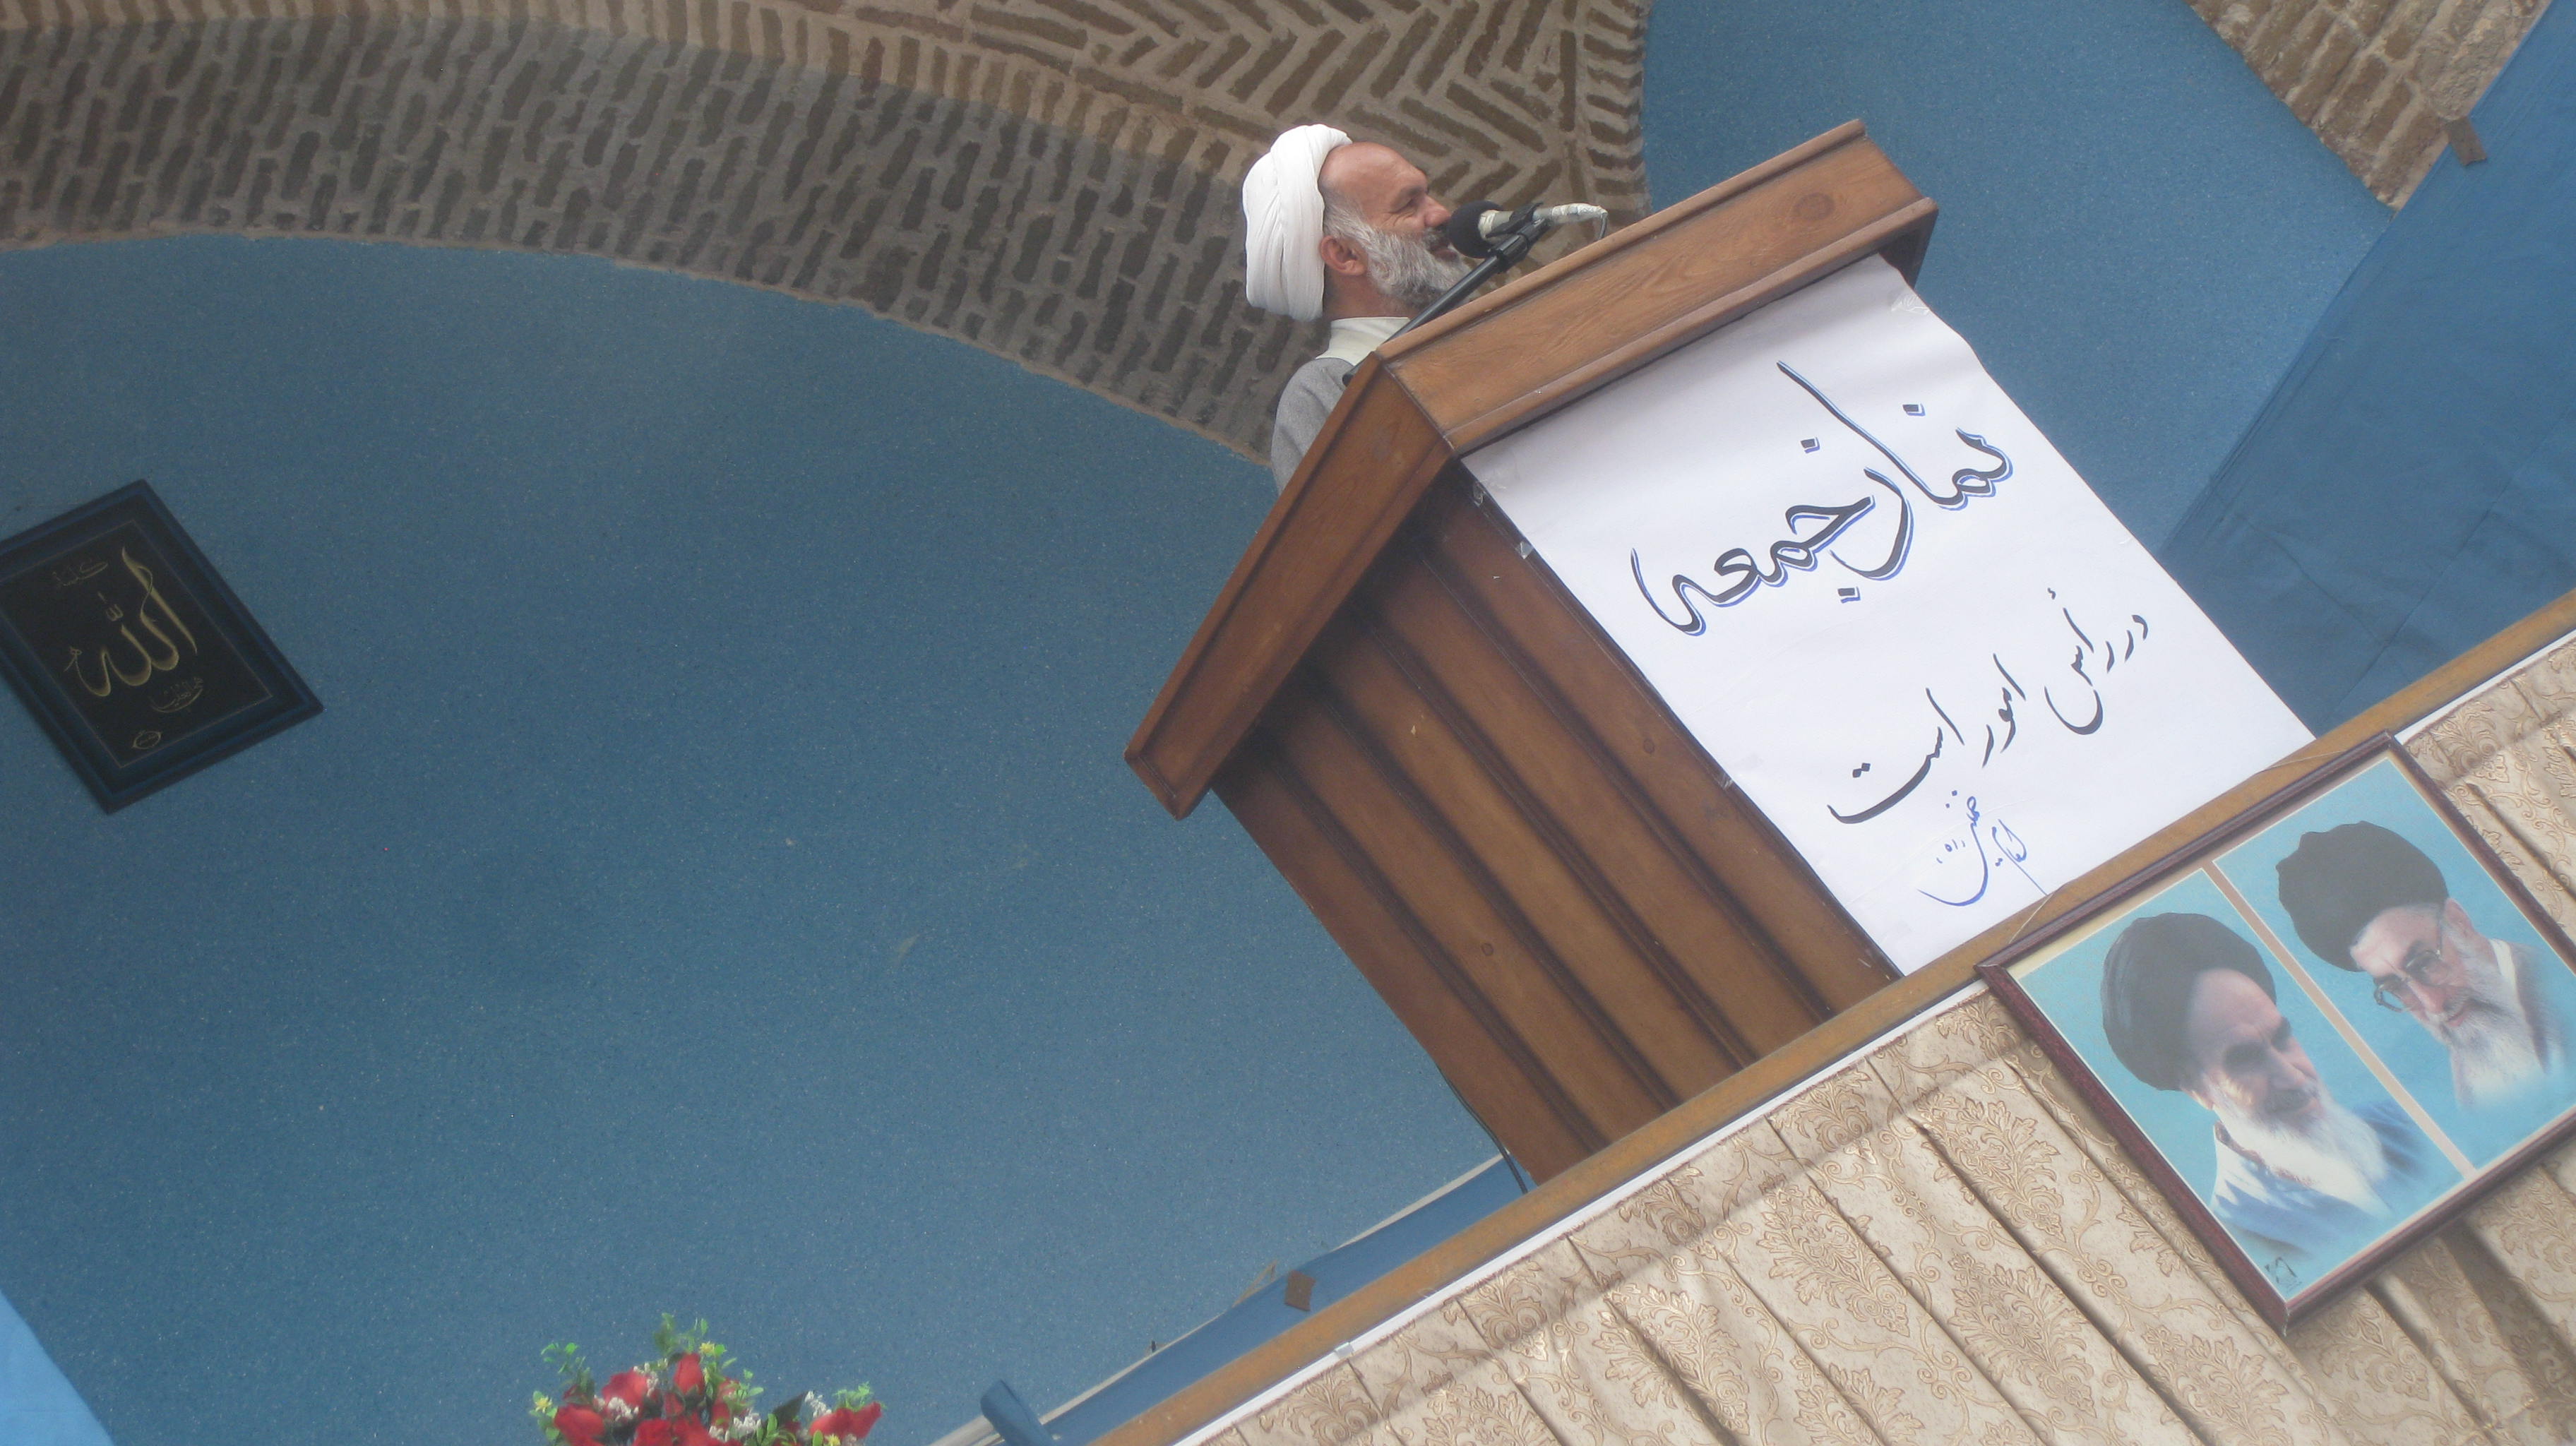 نماز جمعه
در رأس امور است
امام خمینی (ره)
الله